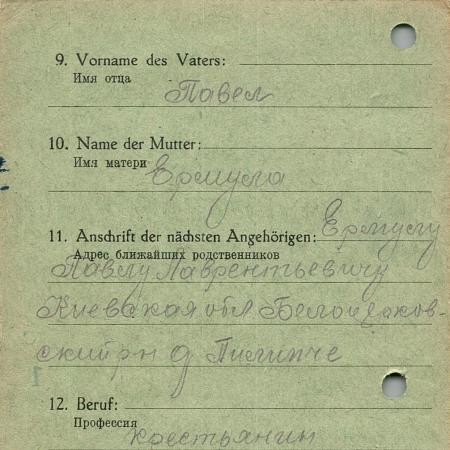 9. Vorname des Vaters:
Имя отца
Павел
10. Name der Mutter:
Имя матери
11. Anschrift der nächsten Angehörigen:
Адрес ближайших родственников
Павлу Лаврентьевичу
Киевская обл Белоцерков-
ский рн д Пилипче
12. Beruf:
Профессия
крестьянин